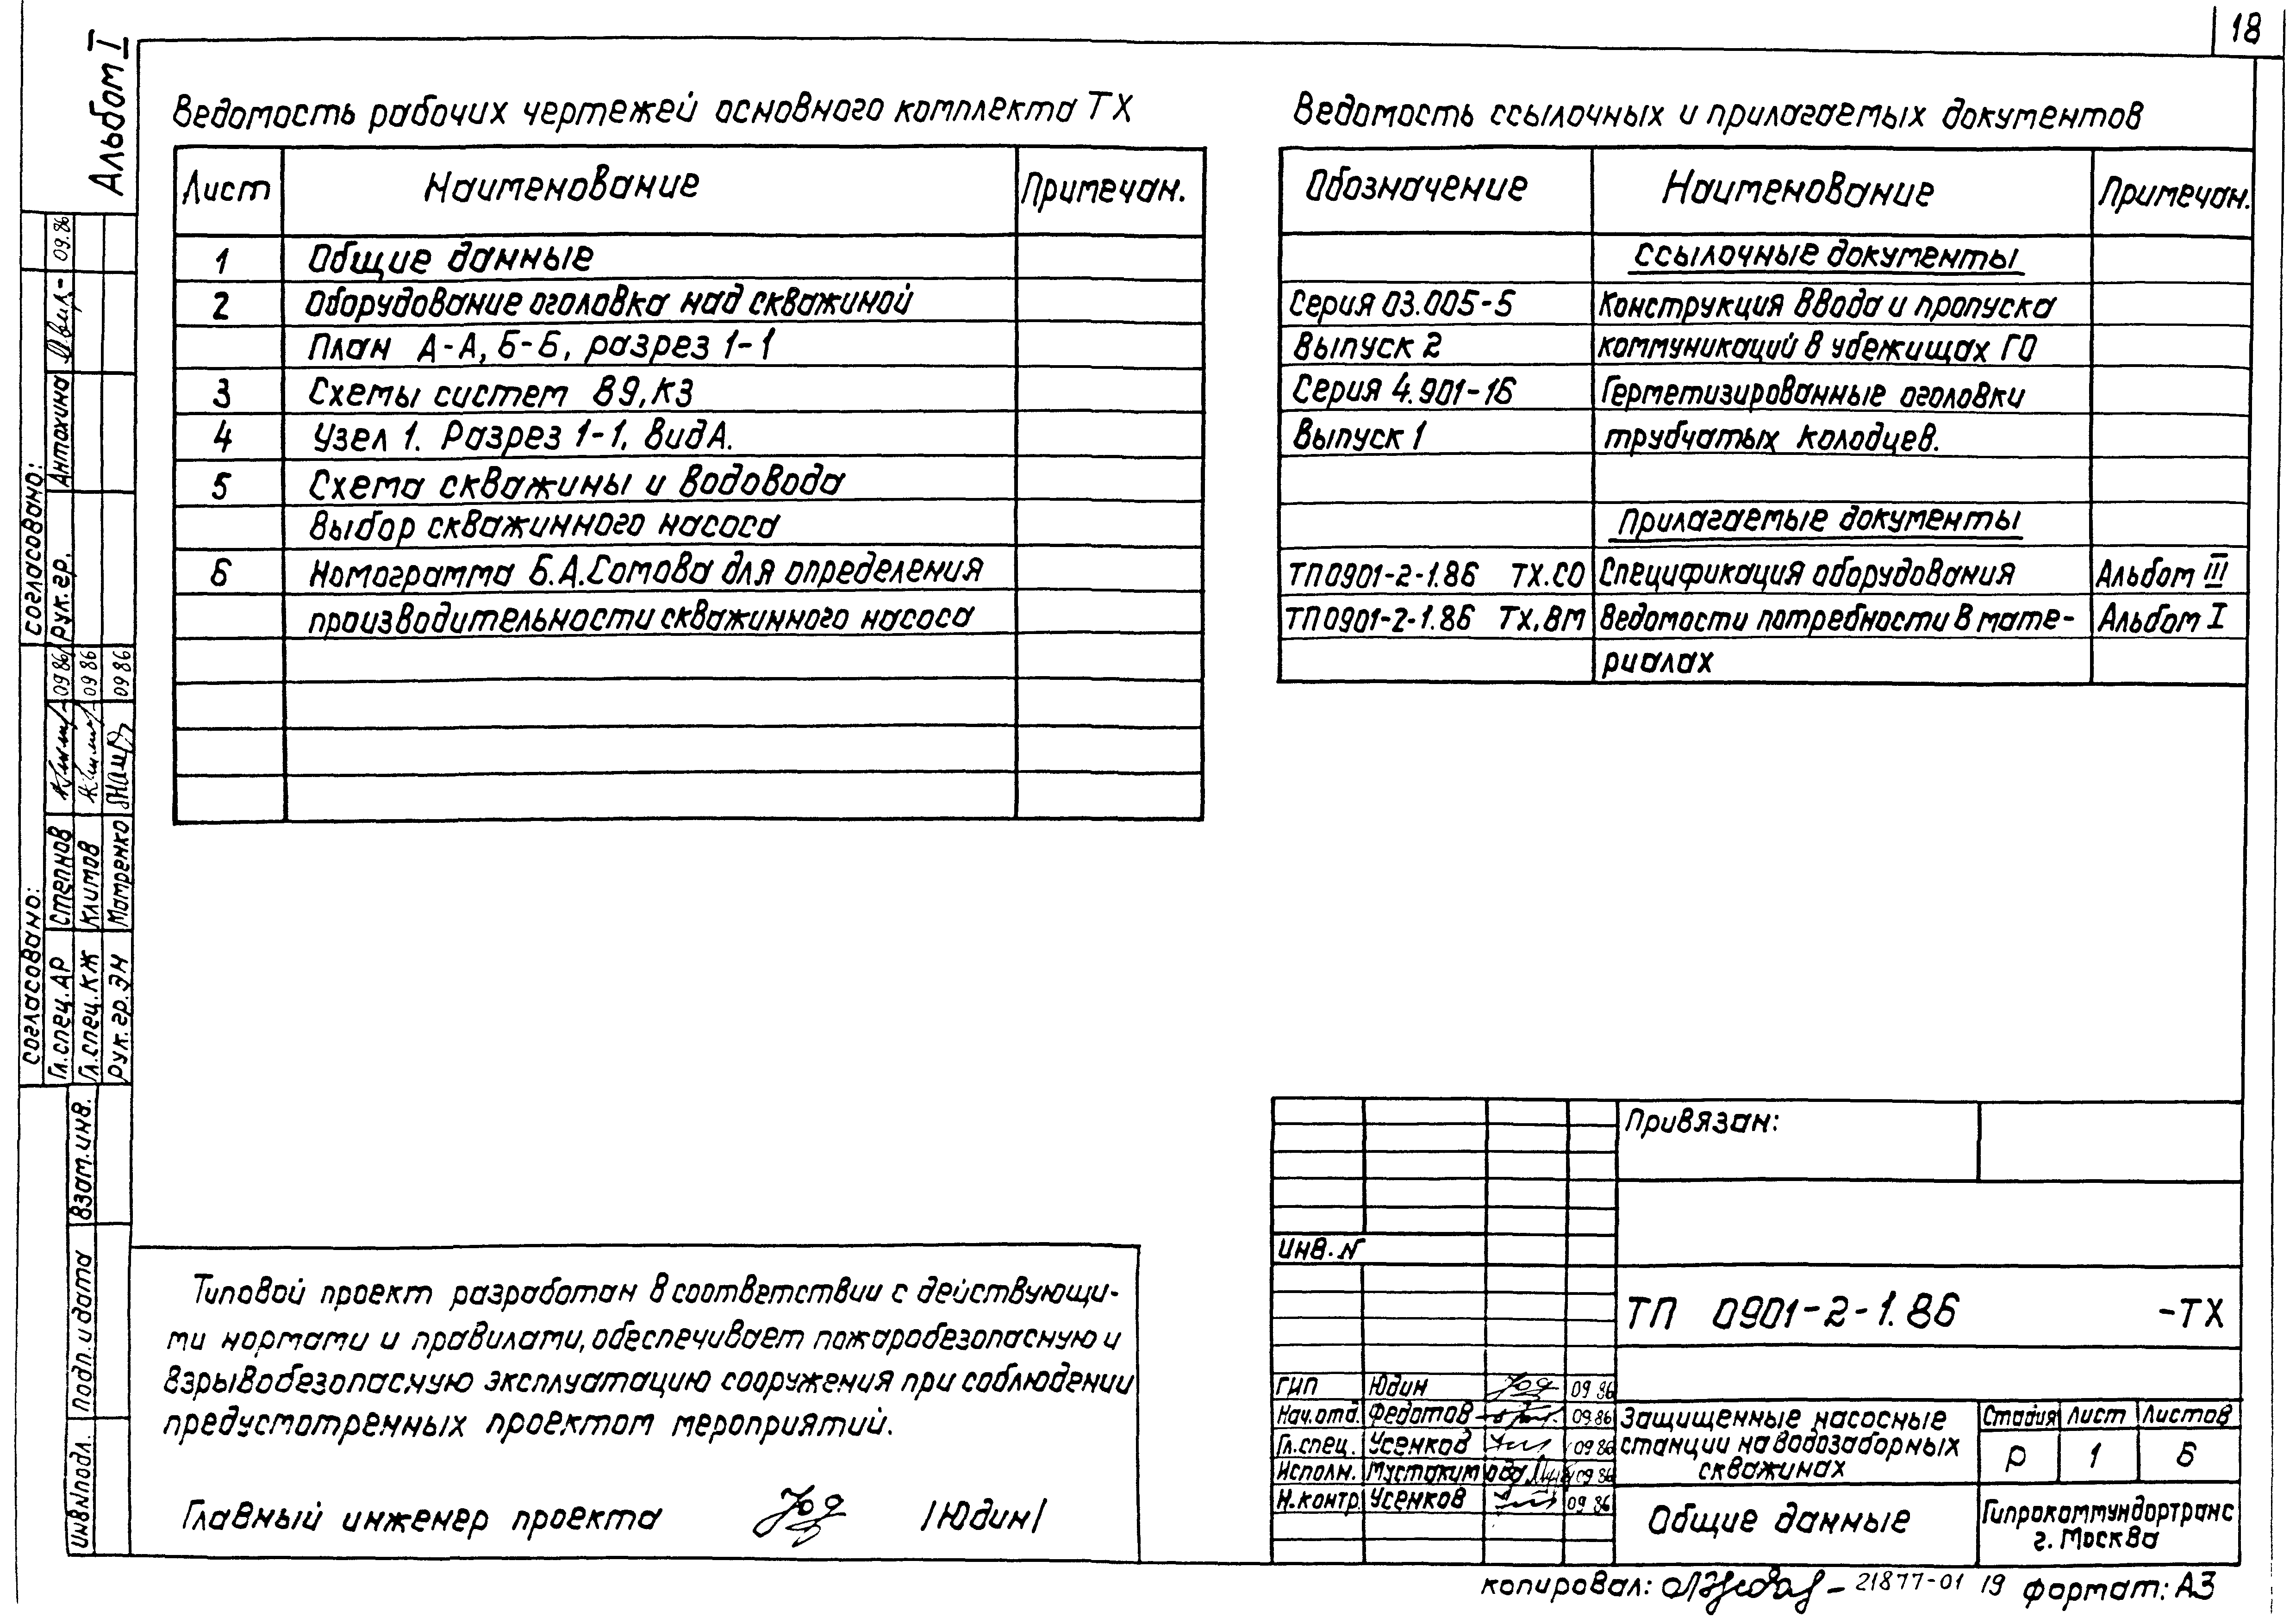 18
Альбом I
Ведомость рабочих чертежей основного комплекта ТХ
Лист Наименование Примечан.
1 Общие данные
2 Оборудование оголовка над скважиной
План А-А, Б-Б, разрез 1-1
3 Схемы систем В9, К3
4 Узел 1. Разрез 1-1, Вид А.
5 Схема скважины и водовода
Выбор скважинного насоса
6 Номограмма Б.А.Сотова для определения
производительности скважинного насоса
Ведомость ссылочных и прилагаемых документов
Обозначение Наименование Примечан.
Ссылочные документы
Серия 03.005-5 Конструкция ввода и пропуска
Выпуск 2 коммуникаций в убежищах ГО
Серия 4.901-16 Герметизированные оголовки
Выпуск 1 трубчатых колодцев.
Прилагаемые документы
ТП0901-2-1.86 ТХ.СО Спецификация оборудования Альбом III
ТП0901-2-1.86 ТХ.ВМ Ведомости потребности в мате- Альбом I
риалах
Согласовано:
Рук.гр. Антохина 09.86
Согласовано:
Гл.спец.АР Степнов 09 86
Гл.спец.КЖ Климов 09 86
Рук.гр.ЭМ Матренко 09 86
Взам.инв.
Подп. и дата
Инв.N подл.
Типовой проект разработан в соответствии с действующи-
ми нормами и правилами, обеспечивает пожаробезопасную и
взрывобезопасную эксплуатацию сооружения при соблюдении
предусмотренных проектом мероприятий.
Главный инженер проекта /Юдин/
Привязан:
Инв.N
ТП 0901-2-1.86 -ТХ
ГИП Юдин 09 86
Нач.отд. Федотов 09.86
Гл.спец. Усенков 09 86
Исполн. Мустакимова 09 86
Н.контр. Усенков 09 86
Защищенные насосные
станции на водозаборных
скважинах
Стадия Лист Листов
Р 1 6
Общие данные
Гипрокоммундортранс
г. Москва
копировал: 21877-01 19 формат: А3